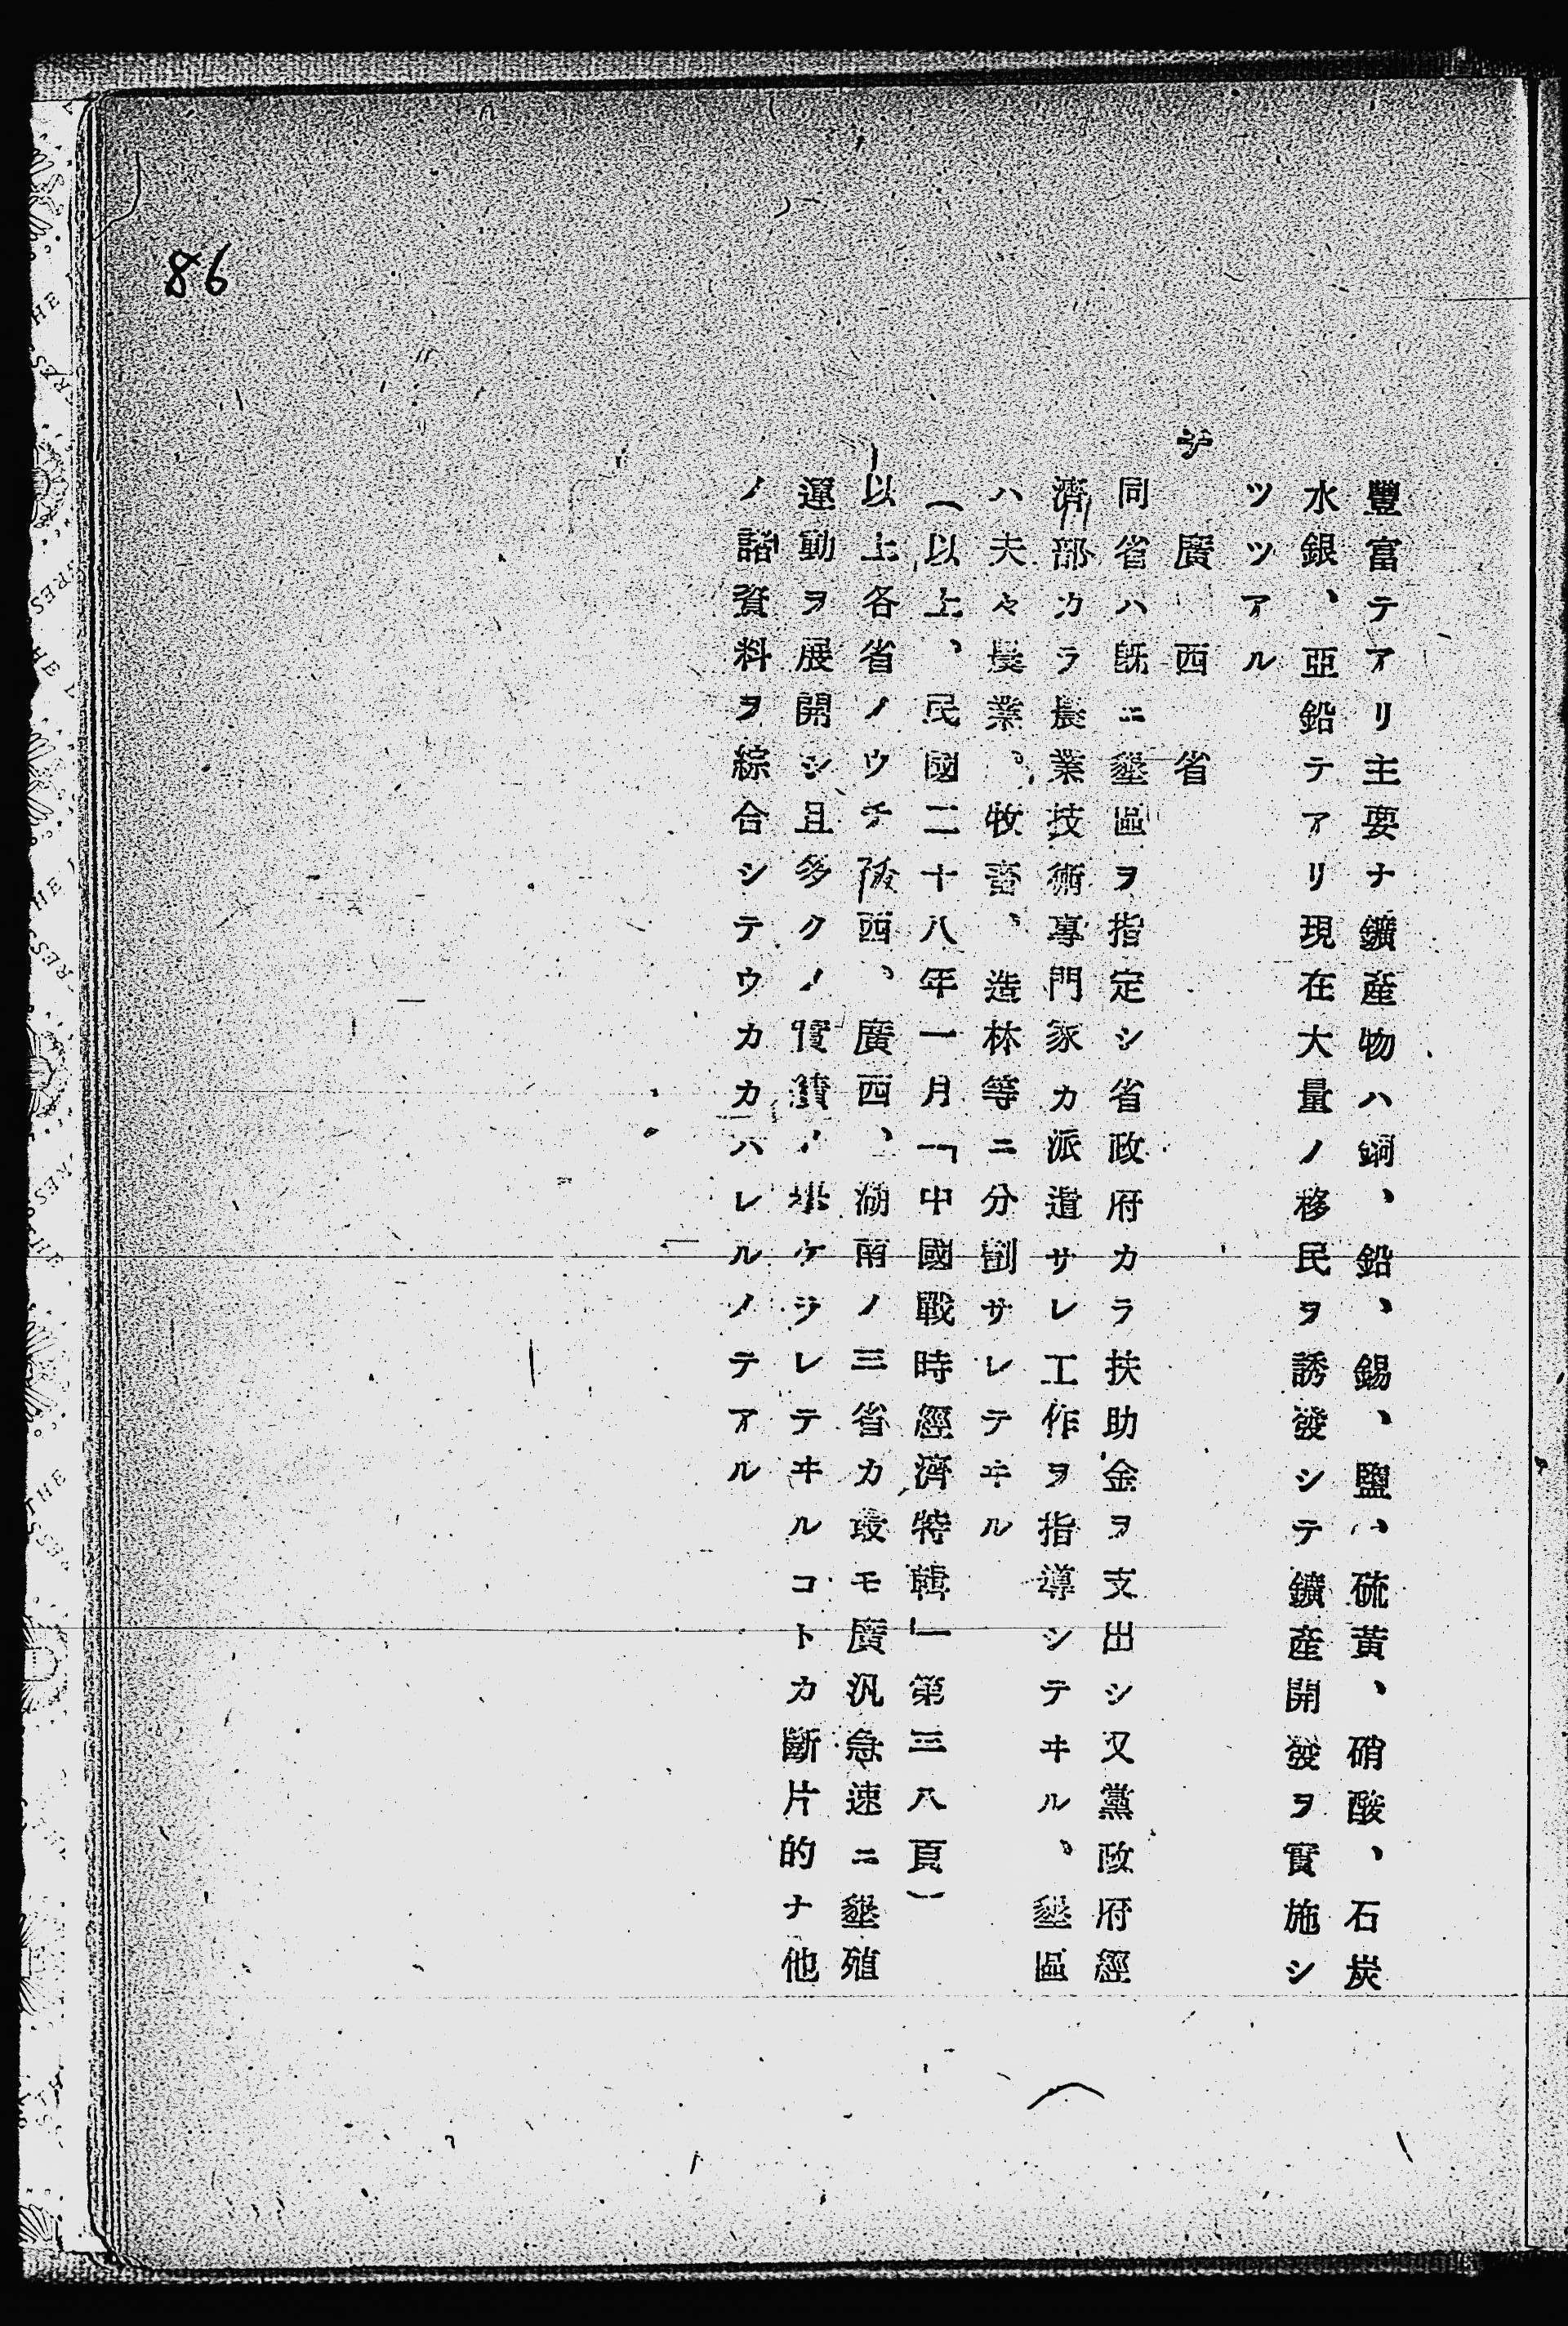 豐富テアリ主要ナ鑛産物ハ銅、鉛、錫、鹽、硫黃、硝酸、石炭
水銀、亞鉛テアリ現在大量ノ移民ヲ誘發シテ鑛産開發ヲ實施シ
ツツアル
廣西省
同省ハ既ニ墾區ヲ指定シ省政府カラ扶助金ヲ支出シ又黨政府經
濟部カラ農業技術專門家カ派遣サレ工作ヲ指導シテヰル、墾區
ハ夫々農業、牧畜、造林等ニ分割サレテヰル
(以上、民國二十八年一月「中國戰時經濟特輯」第三八頁)
以上各省ノウチ陝西、廣西、湖南ノ三省カ最モ廣汎急速ニ墾殖
運動ヲ展開シ且多クノ實績ノ擧ケラレテヰルコトカ斷片的ナ他
ノ諸資料ヲ綜合シテウカカハレルノテアル
86